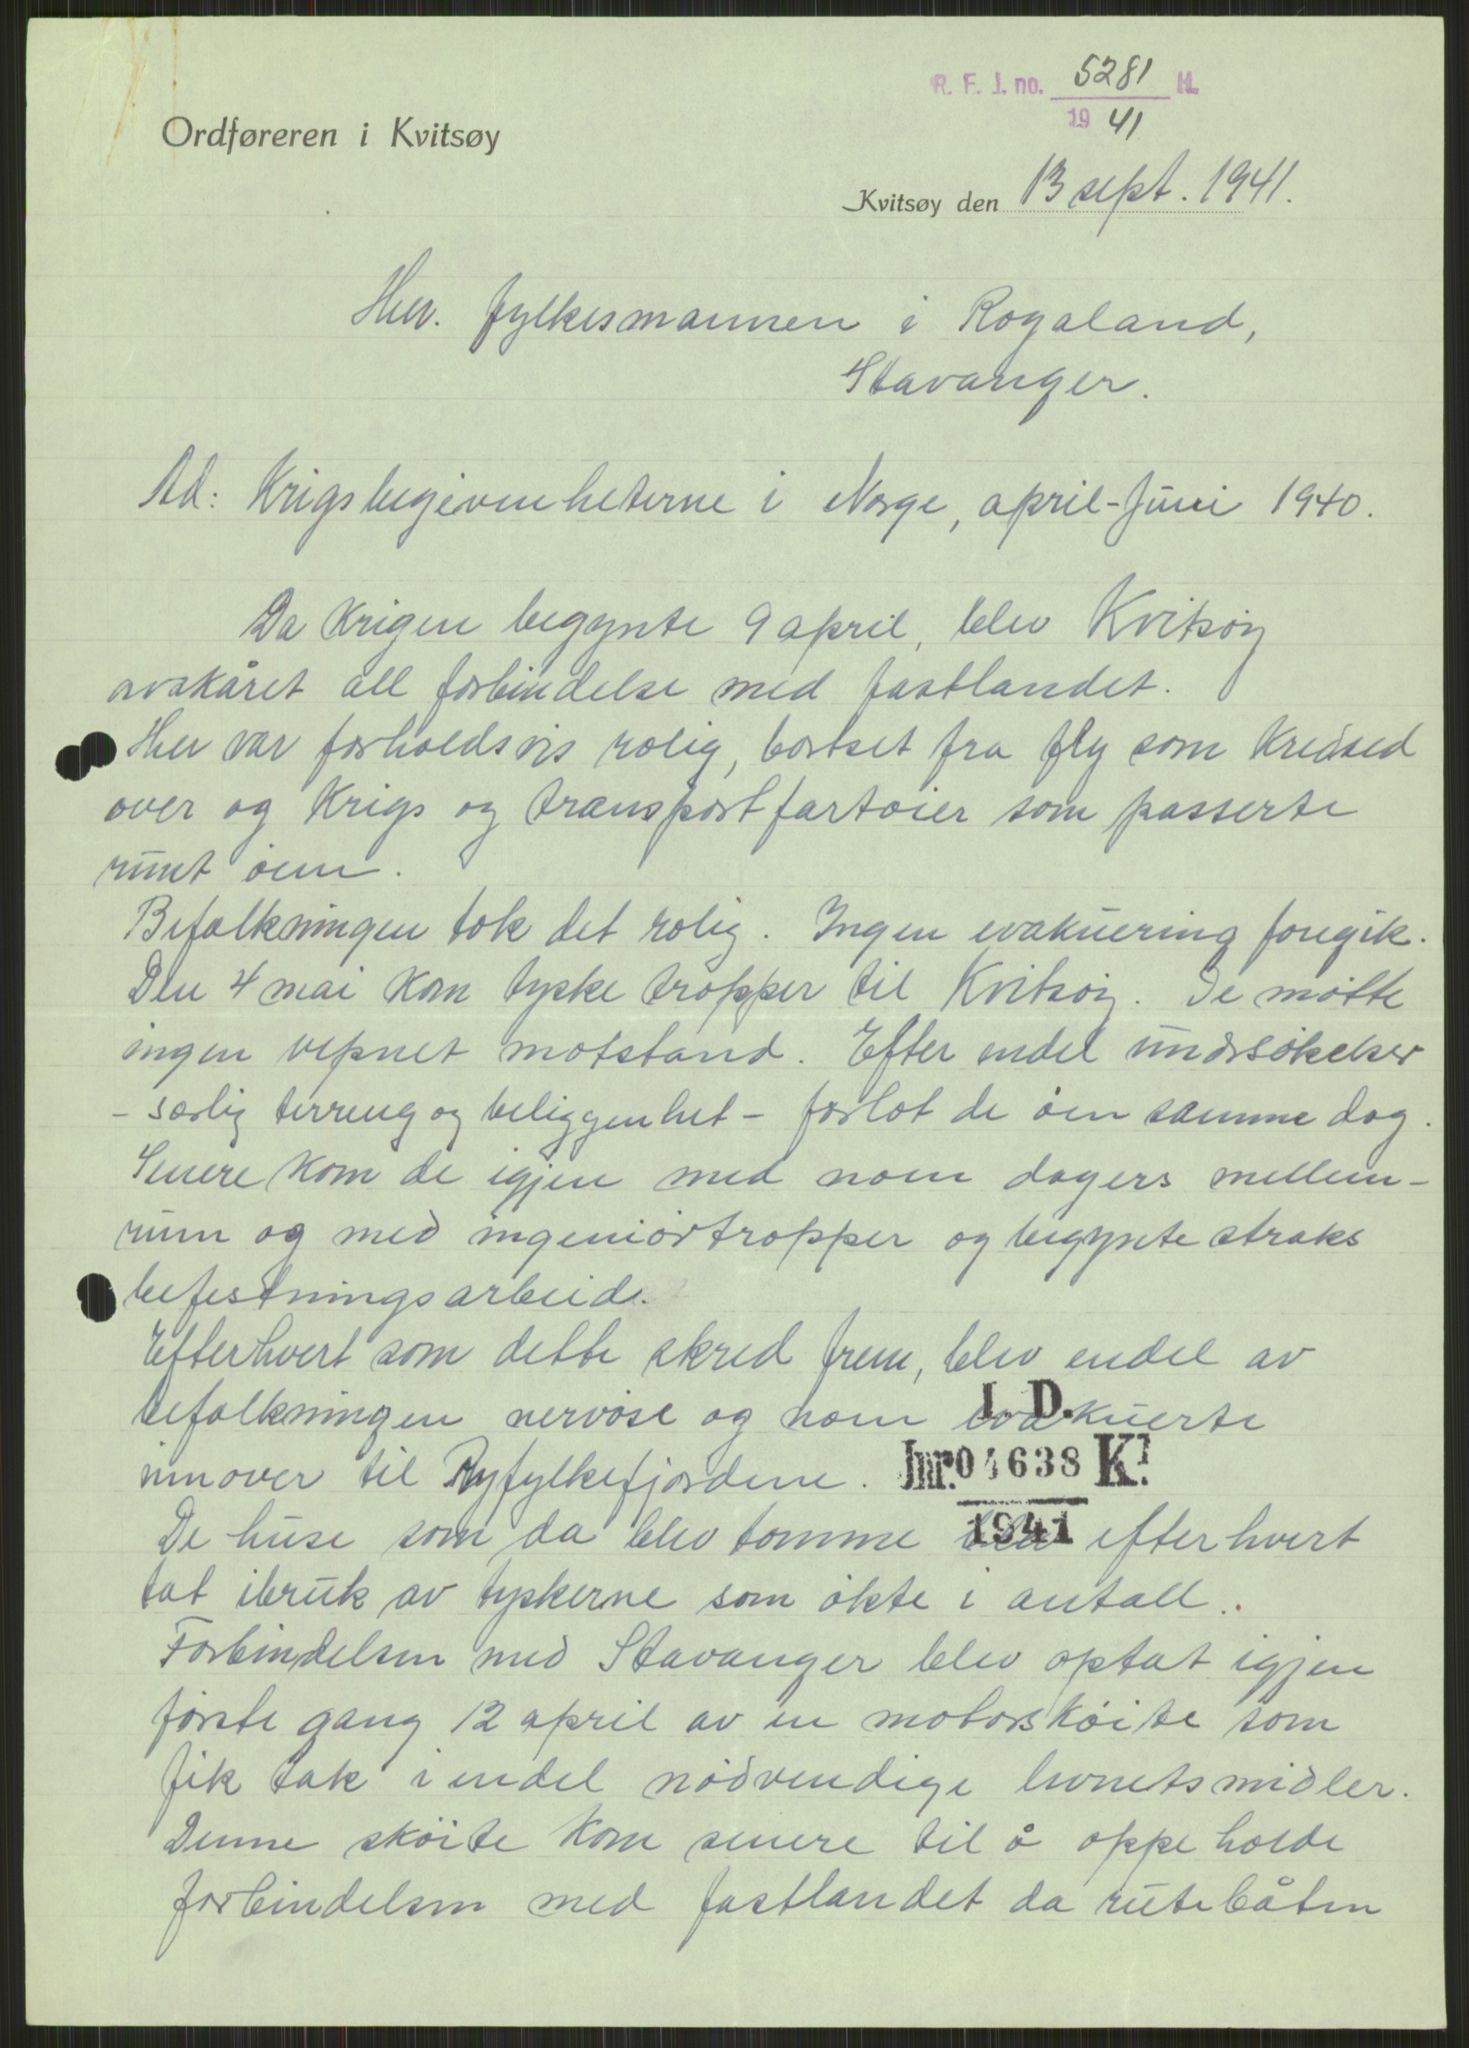 R. F. J. no. 5281 H.
19 41
Ordføreren i Kvitsøy
Kvitsøy den 13 sept. 1941.
Herr. fylkesmannen i Rogaland,
Stavanger.
Ad: Krigsbegivenheterne i Norge, april-Juni 1940.
Da Krigen begynte 9 april, blev Kvitsøy
avskåret all forbindelse med fastlandet.
Her var forholdsvis rolig, bortset fra fly som Kredsed
over og Krigs og transportfartøier som passerte
runt øen.
Befolkningen tok det rolig. Ingen evakuering foregik.
Den 4 mai Kom tyske tropper til Kvitsøy. De møtte
ingen vepnet motstand. Efter endel undersøkelser
- særlig terreng og beliggenhet - forlot de øen samme dag.
Senere Kom de igjen med noen dagers mellem-
rum og med ingeniørtropper og begynte straks
befestningsarbeide.
Efterhvert som dette skred frem, blev endel av
befolkningen nervøse og noen evakuerte
I. D.
innover til Ryfylkefjordene.
Jnr. 04638 K!
1941
De huse som da blev tomme blev efterhvert
tat ibruk av tyskerne som økte i antall.
Forbindelsen med Stavanger blev optat igjen
første gang 12 april av en motorskøite som
fik tak i endel nødvendige livnetsmidler.
Denne skøite Kom senere til å oppeholde
forbindelsen med fastlandet da rutebåten